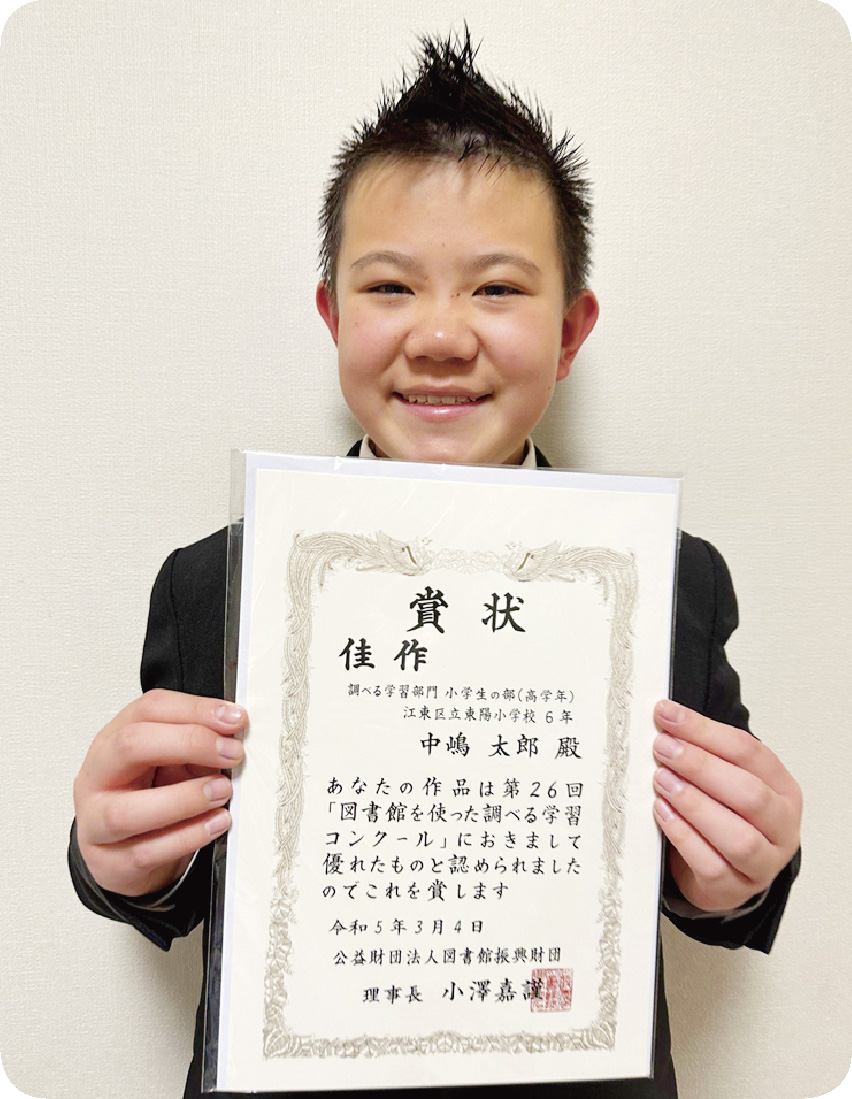 賞状
佳作
調べる学習部門 小学生の部(高学年)
江東区立東陽小学校 6年
中嶋 太郎 殿
あなたの作品は第26回
「図書館を使った調べる学習
コンクール」におきまして
優れたものと認められました
のでこれを賞します
令和5年3月4日
公益財団法人図書館振興財団
理事長 小澤嘉謹